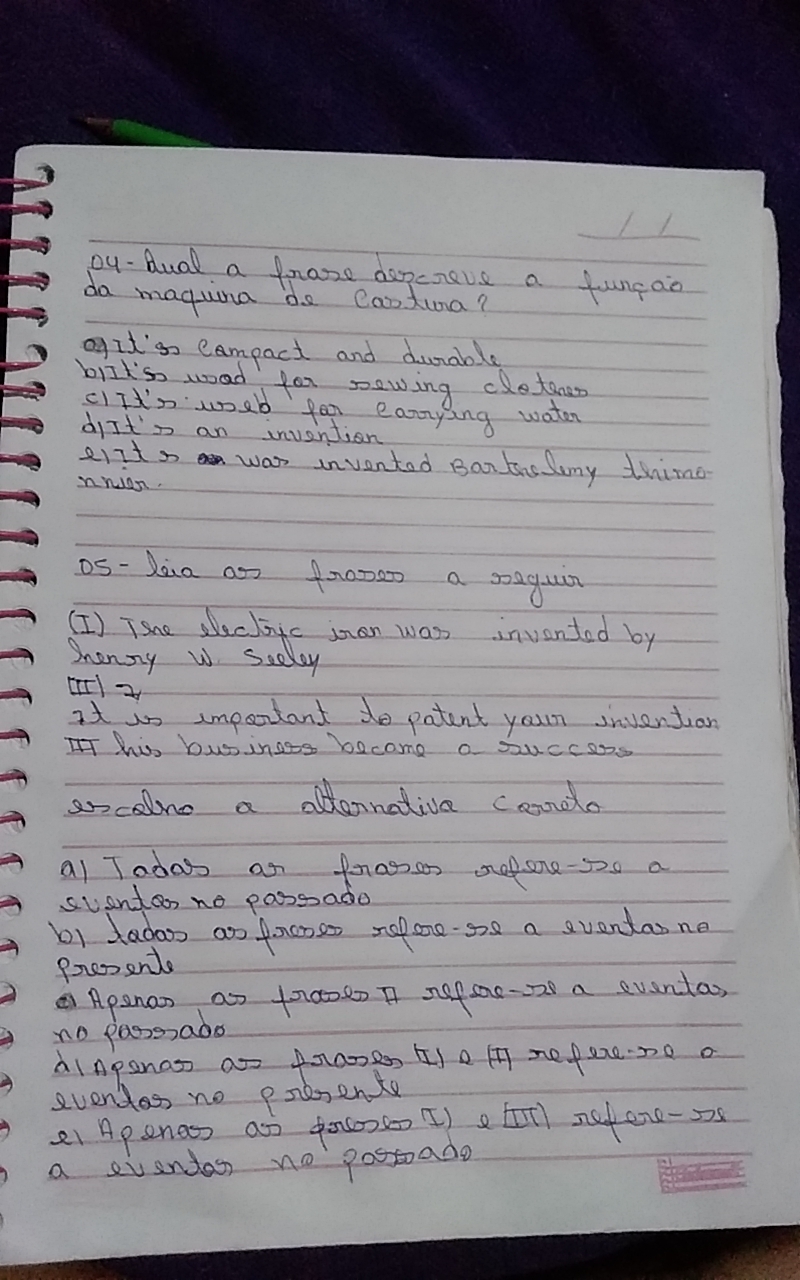 04 - Qual a frase descreve a função
da maquina de Costura?
a) It's Compact and durable
b) It's usad for sewing clothes
c) It's used for carrying water
d) It's an invention
e) It's was invented Barthelemy thimo-
nnier.
05 - leia as frases a seguir
(I) The electric iron was invented by
henry W. Seeley
(II)
It is important to patent your invention
III his business became a success
escolha a alternativa Correta
a) Todas as frases refere-se a
eventos no passado
b) todas as frases refere-se a eventos no
presente
c) Apenas as frases II refere-se a eventos
no passado
d) Apenas as frases (I) e (II) refere-se a
eventos no presente
e) Apenas as frases I) e (III) refere-se
a eventos no passado